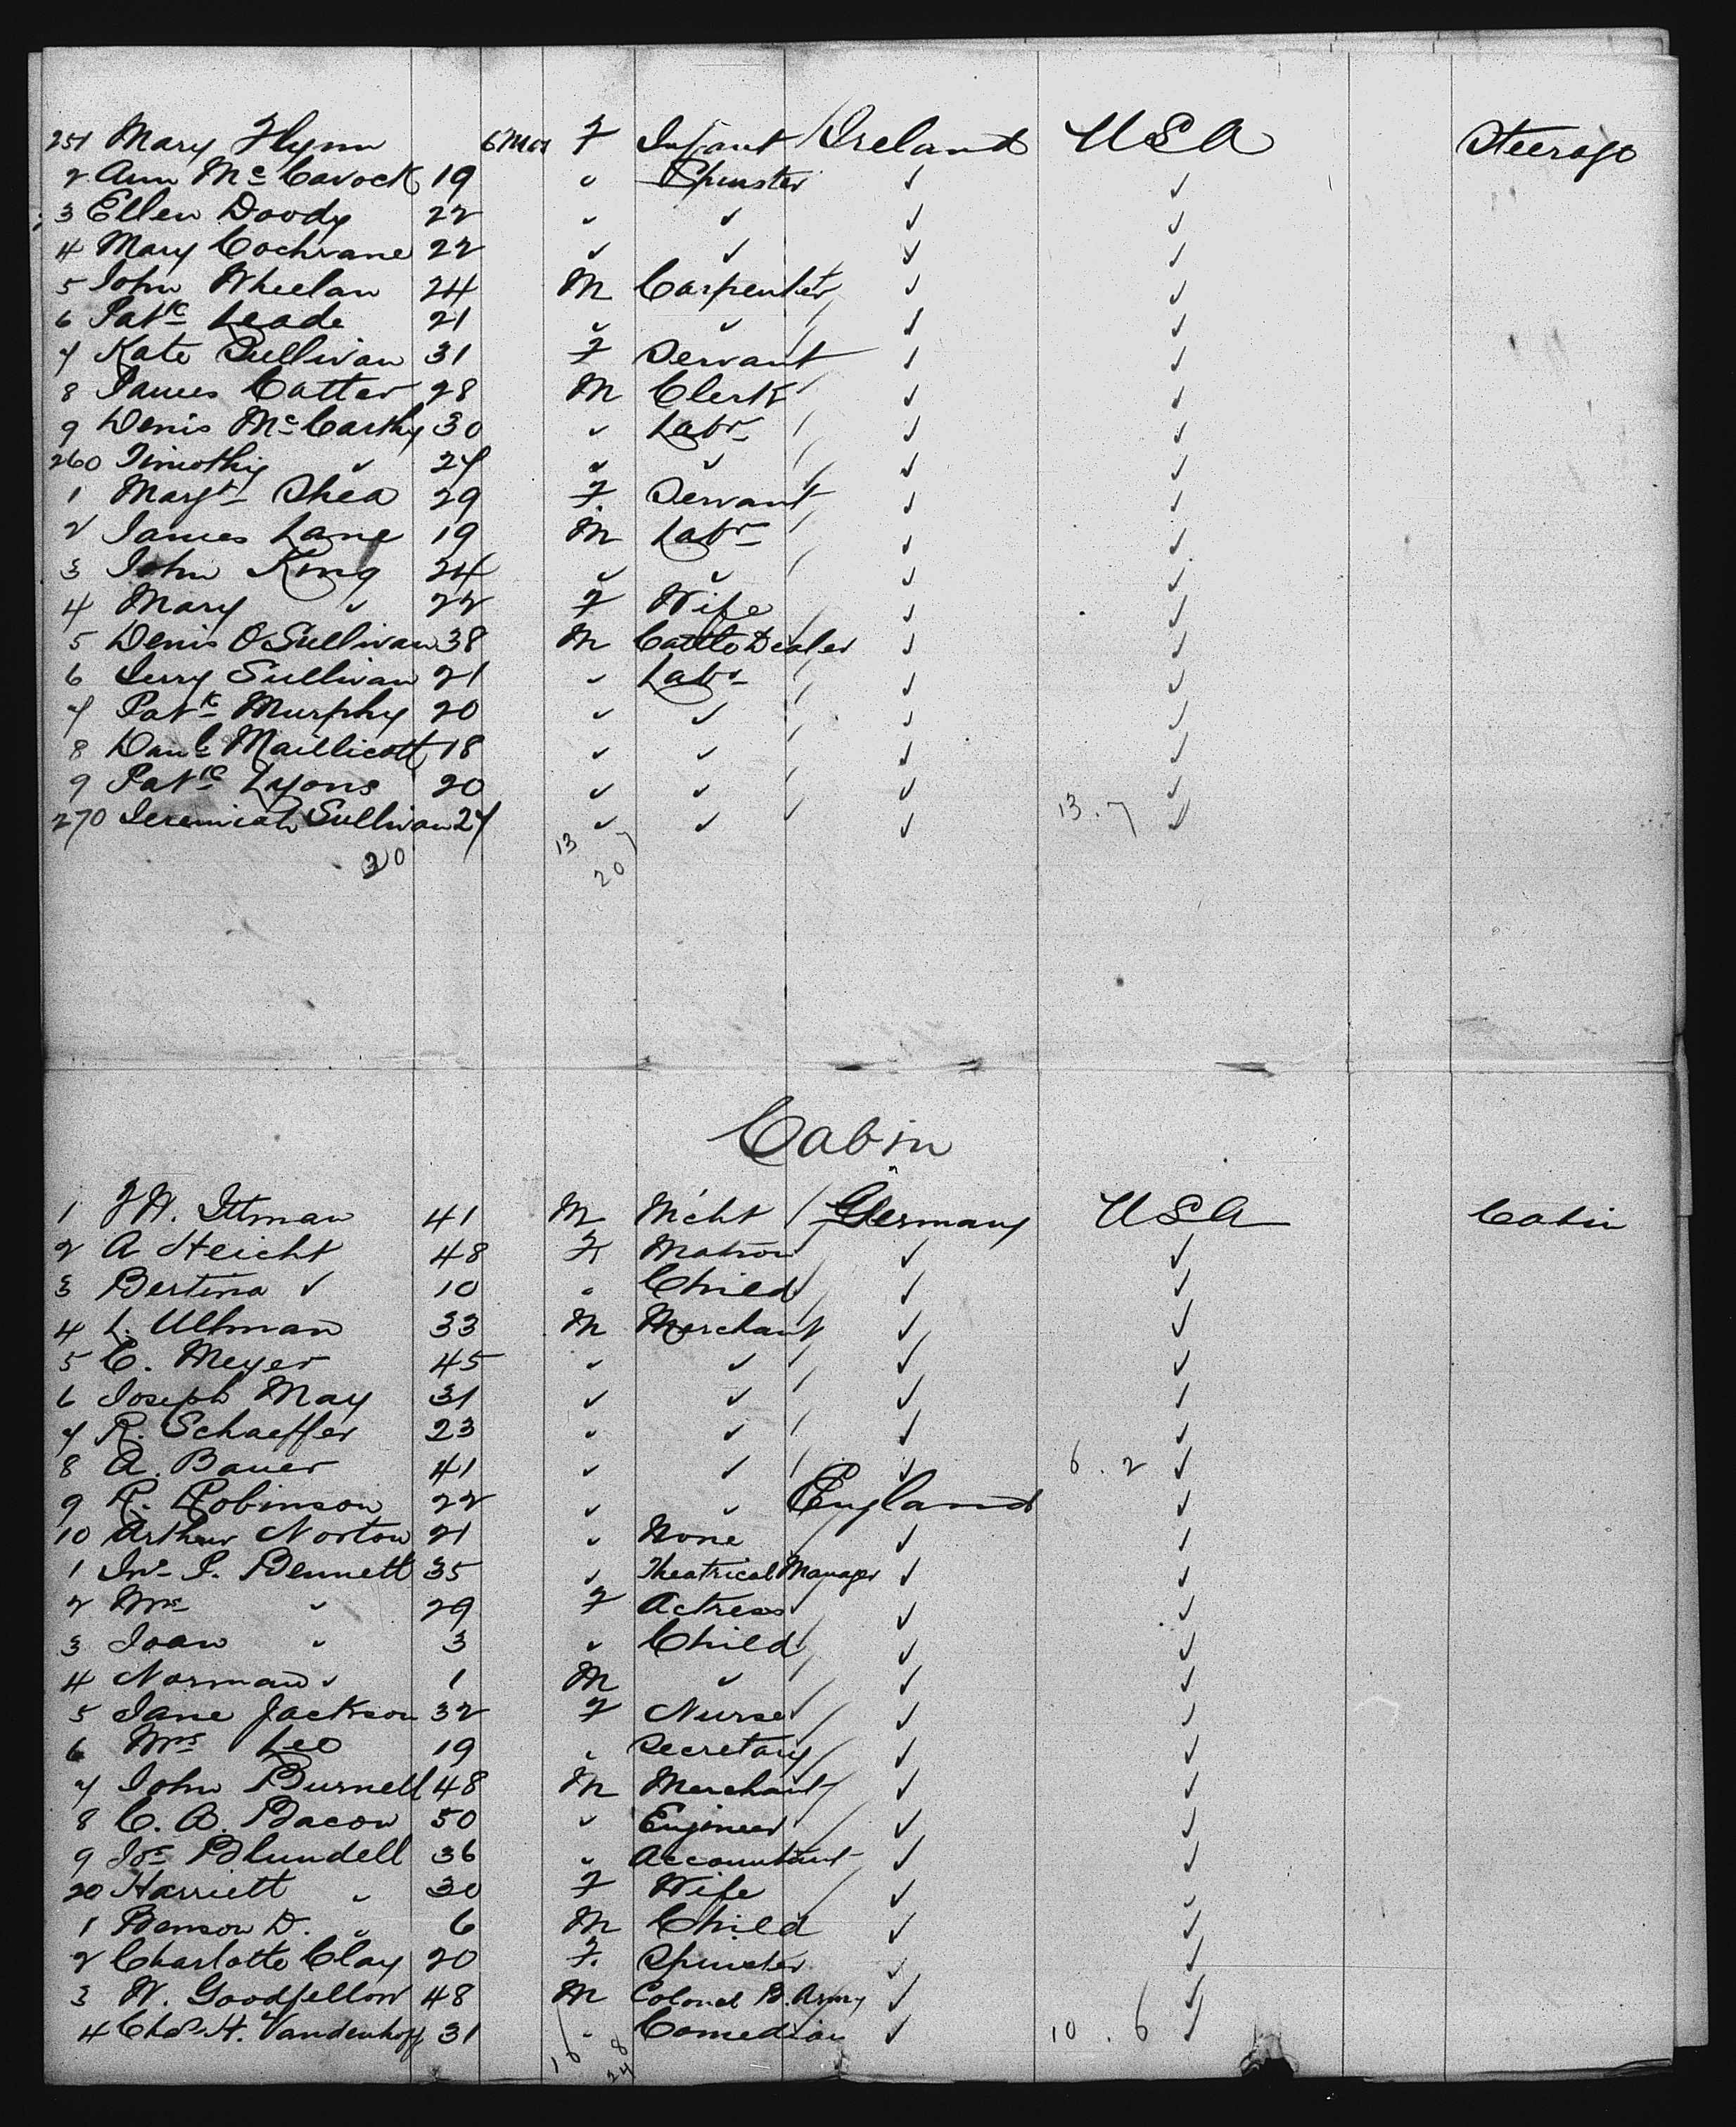 251 Mary Flynn 6 Mos F Infant Ireland USA Steerage
2 Ann McCavock 19 " Spinster ✓ ✓
3 Ellen Doody 22 " " ✓ ✓
4 Mary Cochrane 22 " " ✓ ✓
5 John Wheelan 24 M Carpenter ✓ ✓
6 Patk Leade 21 " " ✓ ✓
7 Kate Sullivan 31 F Servant ✓ ✓
8 James Cotter 28 M Clerk ✓ ✓
9 Denis McCarthy 30 " Labr ✓ ✓
260 Timothy " 27 " " ✓ ✓
1 Margt Shea 29 F Servant ✓ ✓
2 James Lane 19 M Labr ✓ ✓
3 John King 24 " " ✓ ✓
4 Mary " 22 F Wife ✓ ✓
5 Denis O'Sullivan 38 M Cattle Dealer ✓ ✓
6 Jerry Sullivan 21 " Labr ✓ ✓
7 Patk Murphy 20 " " ✓ ✓
8 Danl Maillicott 18 " " ✓ ✓
9 Patk Lyons 20 " " ✓ ✓
270 Jeremiah Sullivan 27 " " ✓ 13 . 7 ✓
20 13 7
20
Cabin
1 J W. Ittman 41 M Mcht Germany USA Cabin
2 A Heicht 48 F Matron ✓ ✓
3 Bertina " 10 " Child ✓ ✓
4 L. Ullman 33 M Merchant ✓ ✓
5 C. Meyer 45 " " ✓ ✓
6 Joseph May 31 " " ✓ ✓
7 R. Schaeffer 23 " " ✓ ✓
8 A. Bauer 41 " " ✓ 6 . 2 ✓
9 R. Robinson 22 " " England ✓
10 Arthur Norton 21 " None ✓ ✓
1 Jno J. Bennett 35 " Theatrical Manager ✓ ✓
2 Mrs " 29 F Actress ✓ ✓
3 Joan " 3 " Child ✓ ✓
4 Norman " 1 M " ✓ ✓
5 Jane Jackson 32 F Nurse ✓ ✓
6 Mrs Leo 19 " Secretary ✓ ✓
7 John Burnell 48 M Merchant ✓ ✓
8 C. A. Bacon 50 " Engineer ✓ ✓
9 Jos Blundell 36 " Accountant ✓ ✓
20 Harriett " 30 F Wife ✓ ✓
1 Benson D. " 6 M Child ✓ ✓
2 Charlotte Clay 20 F. Spinster ✓ ✓
3 W. Goodfellow 48 M Colonel B. Army ✓ ✓
4 Chas. H. Vandenhoff 31 " Comedian ✓ 10 . 6 ✓
16 8
24